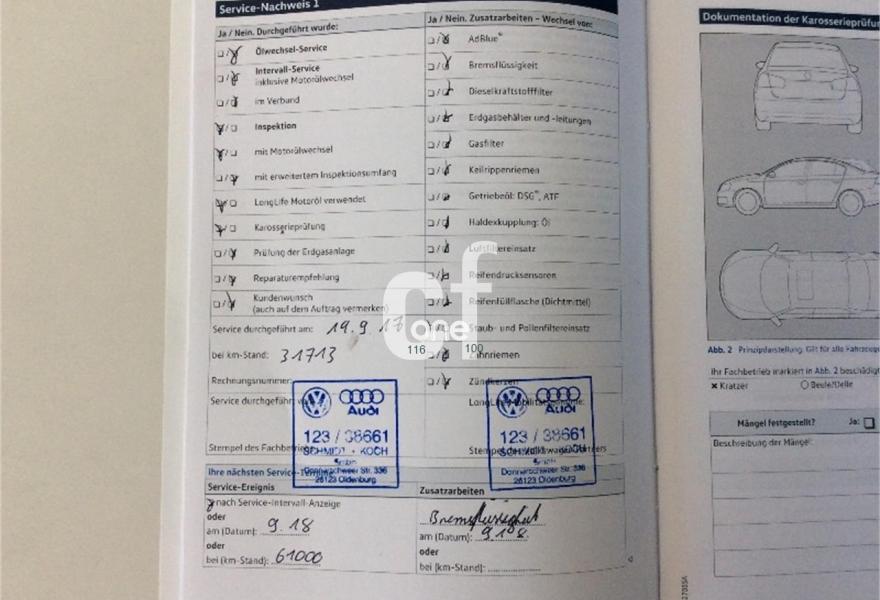 Service-Nachweis 1
Ja / Nein. Durchgeführt wurde:
Ölwechsel-Service
Intervall-Service
inklusive Motorölwechsel
im Verbund
Inspektion
mit Motorölwechsel
mit erweitertem Inspektionsumfang
LongLife Motoröl verwendet
Karosserieprüfung
Prüfung der Erdgasanlage
Reparaturempfehlung
Kundenwunsch
(auch auf dem Auftrag vermerken)
Service durchgeführt am: 19.9.17
bei km-Stand: 31713
Rechnungsnummer:
Service durchgeführt
Stempel des Fachbetriebs
Audi
123 / 38661
SCHMIDT + KOCH
GmbH
Donnerschweer Str. 336
26123 Oldenburg
Ihre nächsten Service-Termine
Service-Ereignis
nach Service-Intervall-Anzeige
oder
am (Datum): 9.18
oder
bei (km-Stand): 61000
Ja / Nein. Zusatzarbeiten – Wechsel von:
AdBlue®
Bremsflüssigkeit
Dieselkraftstofffilter
Erdgasbehälter und -leitungen
Gasfilter
Keilrippenriemen
Getriebeöl: DSG®, ATF
Haldexkupplung: Öl
Luftfiltereinsatz
Reifendrucksensoren
Reifenfüllflasche (Dichtmittel)
Staub- und Pollenfiltereinsatz
Zahnriemen
Zündkerzen
Audi
123 / 38661
SCHMIDT + KOCH
GmbH
Donnerschweer Str. 336
26123 Oldenburg
Zusatzarbeiten
Bremsflüssigkeit
am (Datum): 9.18
oder
bei (km-Stand):
cf
one
116
100
Dokumentation der Karosserieprüfun
Abb. 2 Prinzipdarstellung. Gilt für alle Fahrzeuge
Ihr Fachbetrieb markiert in Abb. 2 beschädigt
× Kratzer
Beule/Delle
Mängel festgestellt? Ja:
Beschreibung der Mängel: